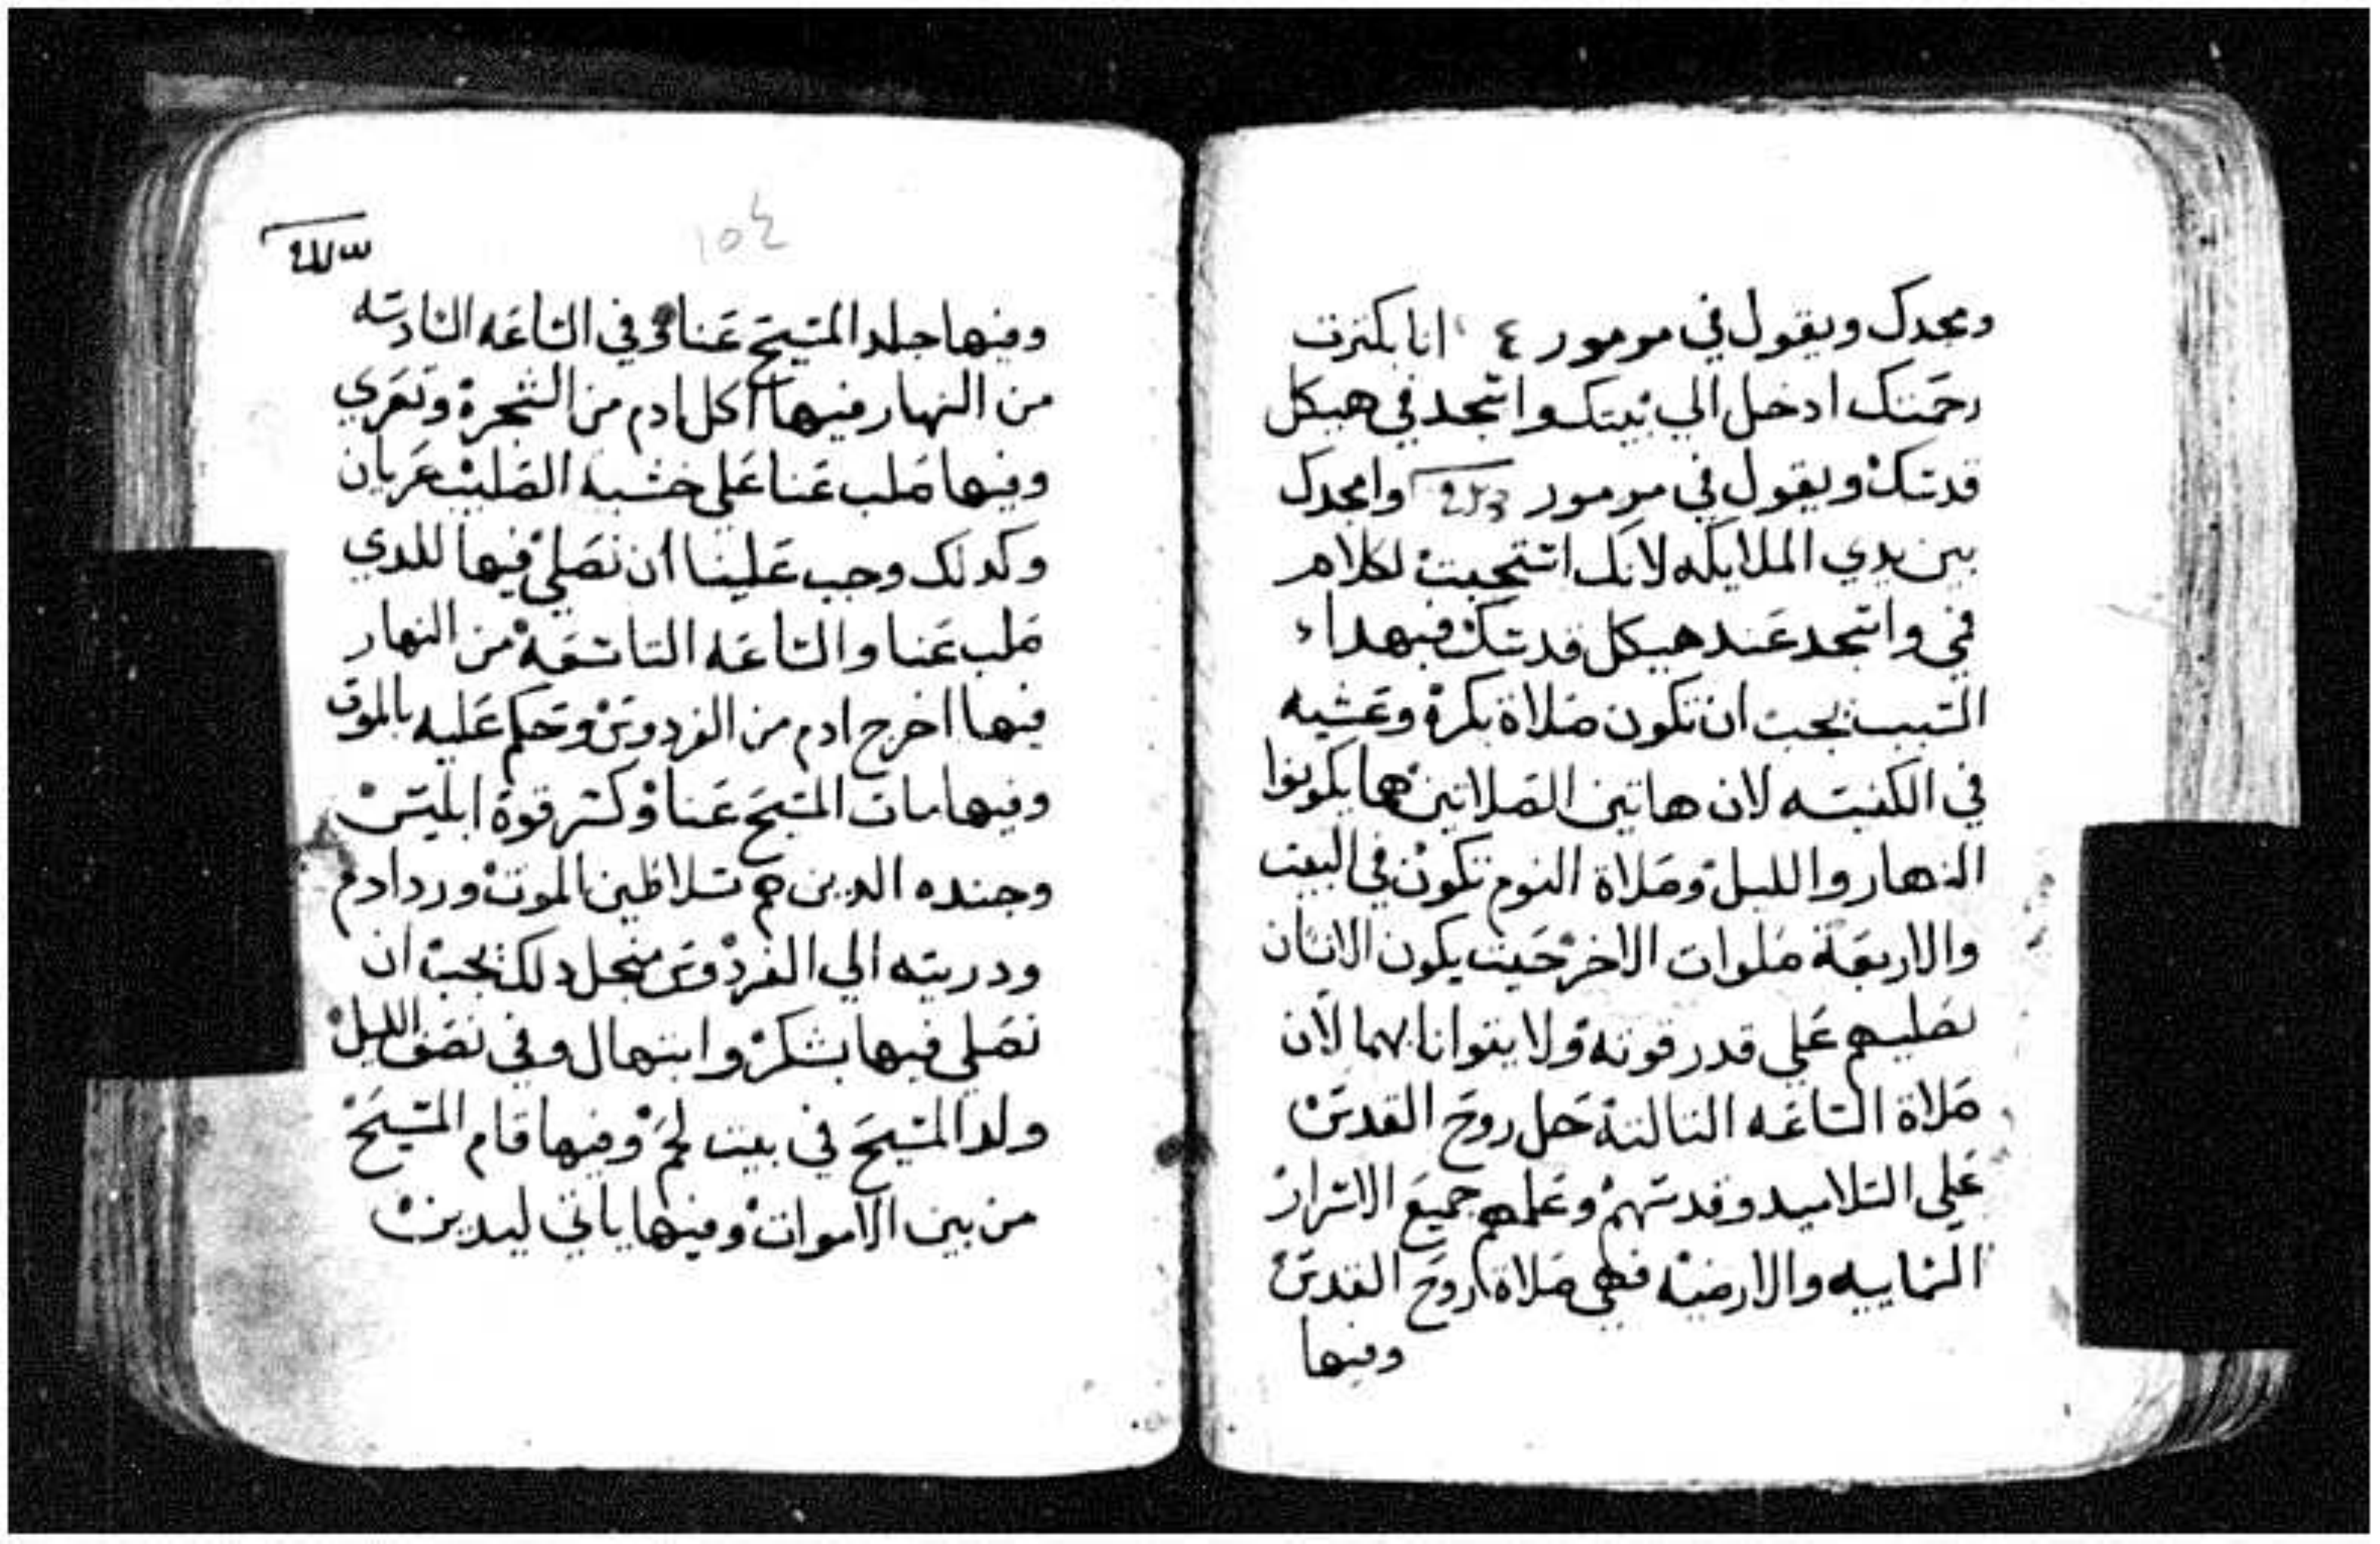 ومجدك ويقول في مزمور ٤ انا بكترت
رحمتك ادخل الي بيتك واسجد في هيكل
قدسك ويقول في مزمور وامجدك
بين يدي الملايكه لانك استجبت لكلام
فمي واسجد عند هيكل قدسك فبهدا
السبب يجب ان تكون صلاة بكرة وعشيه
في الكنيسه لان هاتين الصلاتين هما يكونوا
النهار والليل وصلاة النوم تكون في البيت
والاربعة صلوات الاخر حيت يكون الانسان
يصليهم علي قدر قوته ولا يتوانا بهما لان
صلاة الساعه التالتة حل روح القدس
علي التلاميد وقدسهم وعلمهم جميع الاسرار
السماييه والارضيه فهي صلاة روح القدس
وفيها
١٥٤
وفيها جلد المسيح عنا وفي الساعه السادسه
من النهار فيها اكل ادم من الشجرة وتعري
وفيها صلب عنا علي خشبة الصليب عريان
وكدلك وجب علينا ان نصلي فيها للدي
صلب عنا والساعه التاسعة من النهار
فيها اخرج ادم من الفردوس وحكم عليه بالموت
وفيها مات المسيح عنا وكسر قوة ابليس
وجنده الدين هم سلاطين الموت ورد ادم
ودريته الي الفردوس منجل دلك يجب ان
نصلي فيها بشكر وابتهال وفي نصف الليل
ولد المسيح في بيت لحم وفيها قام المسيح
من بين الاموات وفيها ياتي ليدين